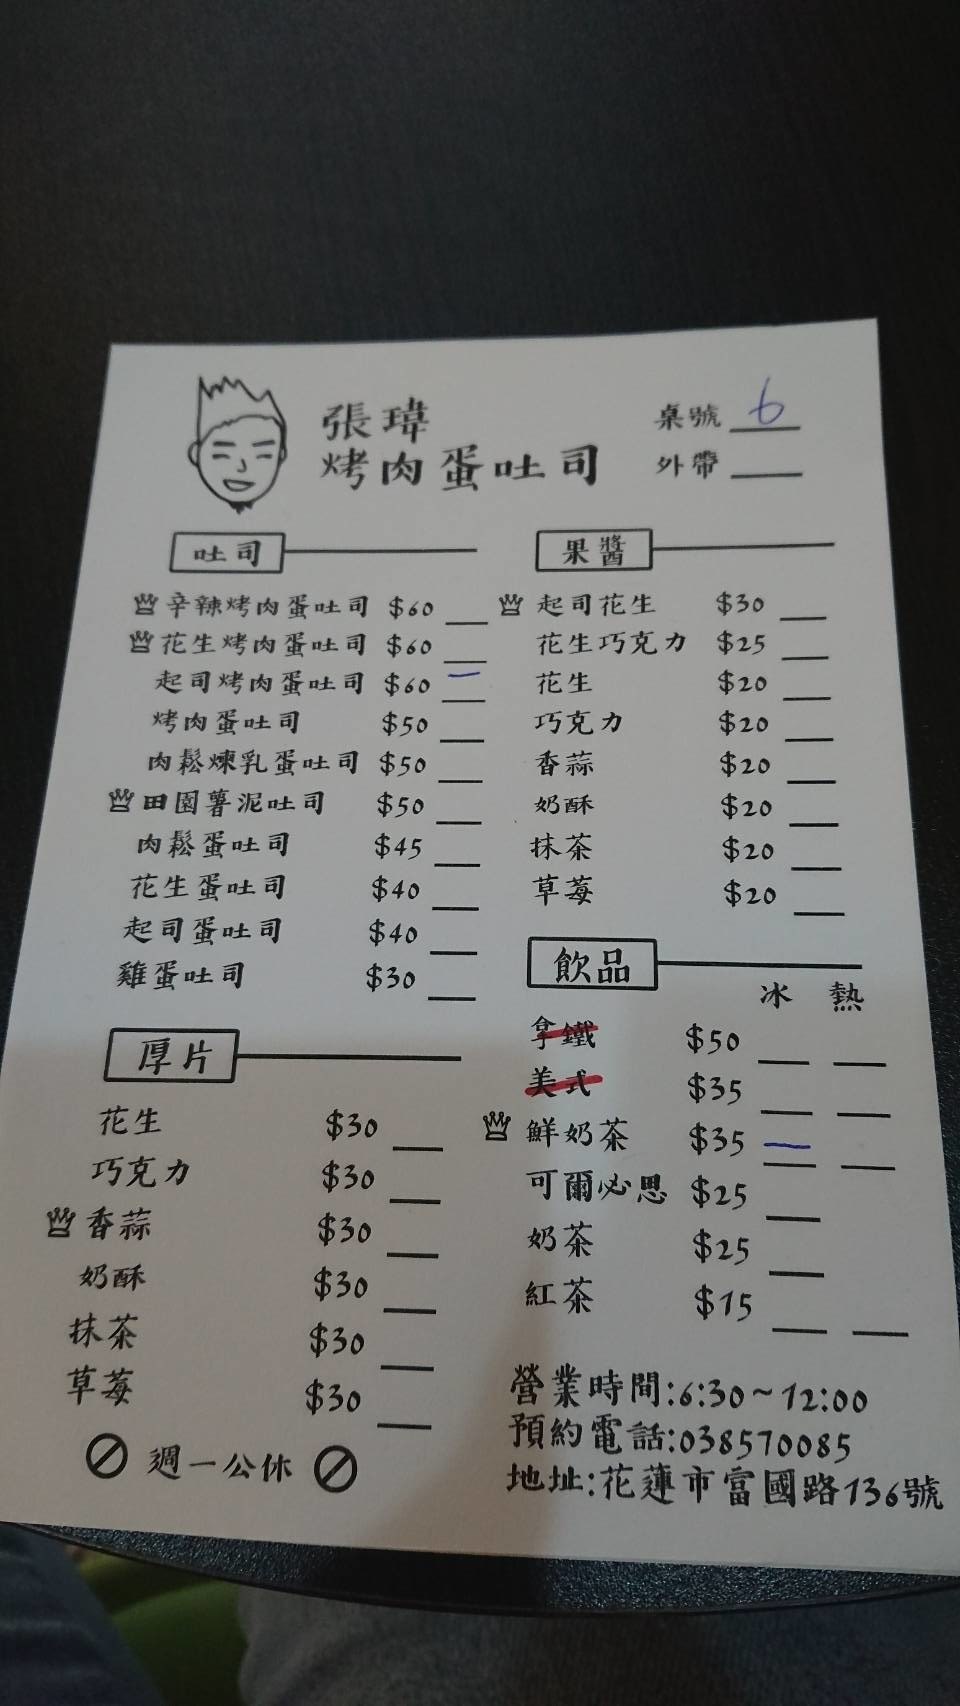 張瑋
烤肉蛋吐司
桌號 6
外帶
吐司
辛辣烤肉蛋吐司 $60
花生烤肉蛋吐司 $60
起司烤肉蛋吐司 $60 一
烤肉蛋吐司 $50
肉鬆煉乳蛋吐司 $50
田園薯泥吐司 $50
肉鬆蛋吐司 $45
花生蛋吐司 $40
起司蛋吐司 $40
雞蛋吐司 $30
厚片
花生 $30
巧克力 $30
香蒜 $30
奶酥 $30
抹茶 $30
草莓 $30
週一公休
果醬
起司花生 $30
花生巧克力 $25
花生 $20
巧克力 $20
香蒜 $20
奶酥 $20
抹茶 $20
草莓 $20
飲品
冰 熱
拿鐵 $50
美式 $35
鮮奶茶 $35 一
可爾必思 $25
奶茶 $25
紅茶 $15
營業時間:6:30~12:00
預約電話:038570085
地址:花蓮市富國路136號